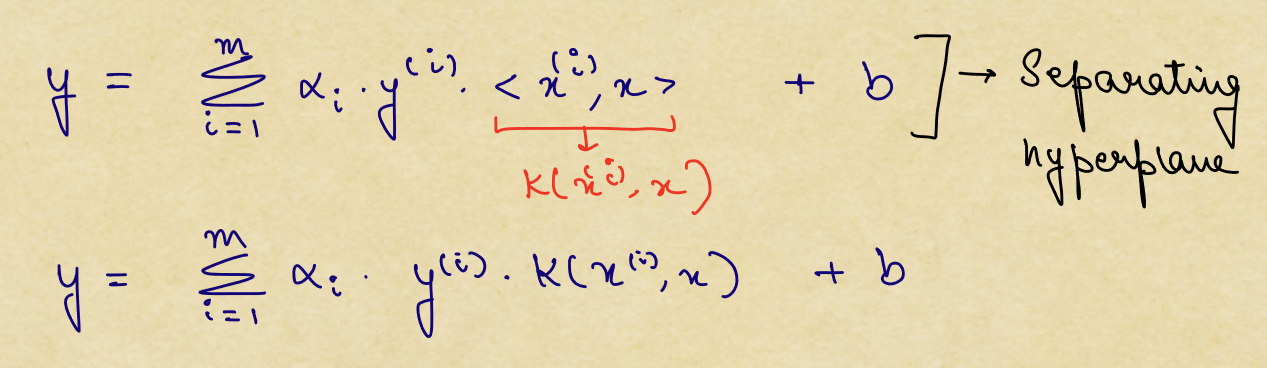 y = Σ_{i=1}^{m} α_i · y^{(i)} · < x^{(i)}, x > + b ] → Separating
hyperplane
K(x^{(i)}, x)
y = Σ_{i=1}^{m} α_i · y^{(i)} · K(x^{(i)}, x) + b